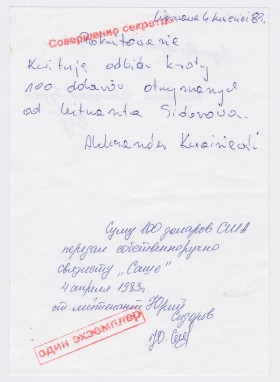 Warszawa 4 kwiecień 83r.
Совершенно секретно
Pokwitowanie
Kwituję odbiór kwoty
100 dolarów otrzymanych
od lejtnanta Sidorowa.
Aleksander
Сумму 100 доларов США
передал собственноручно
связисту „Саше"
4 апреля 1983г.
от лейтенант Юрий
Сидоров
Ю. Сид
один экземпляр